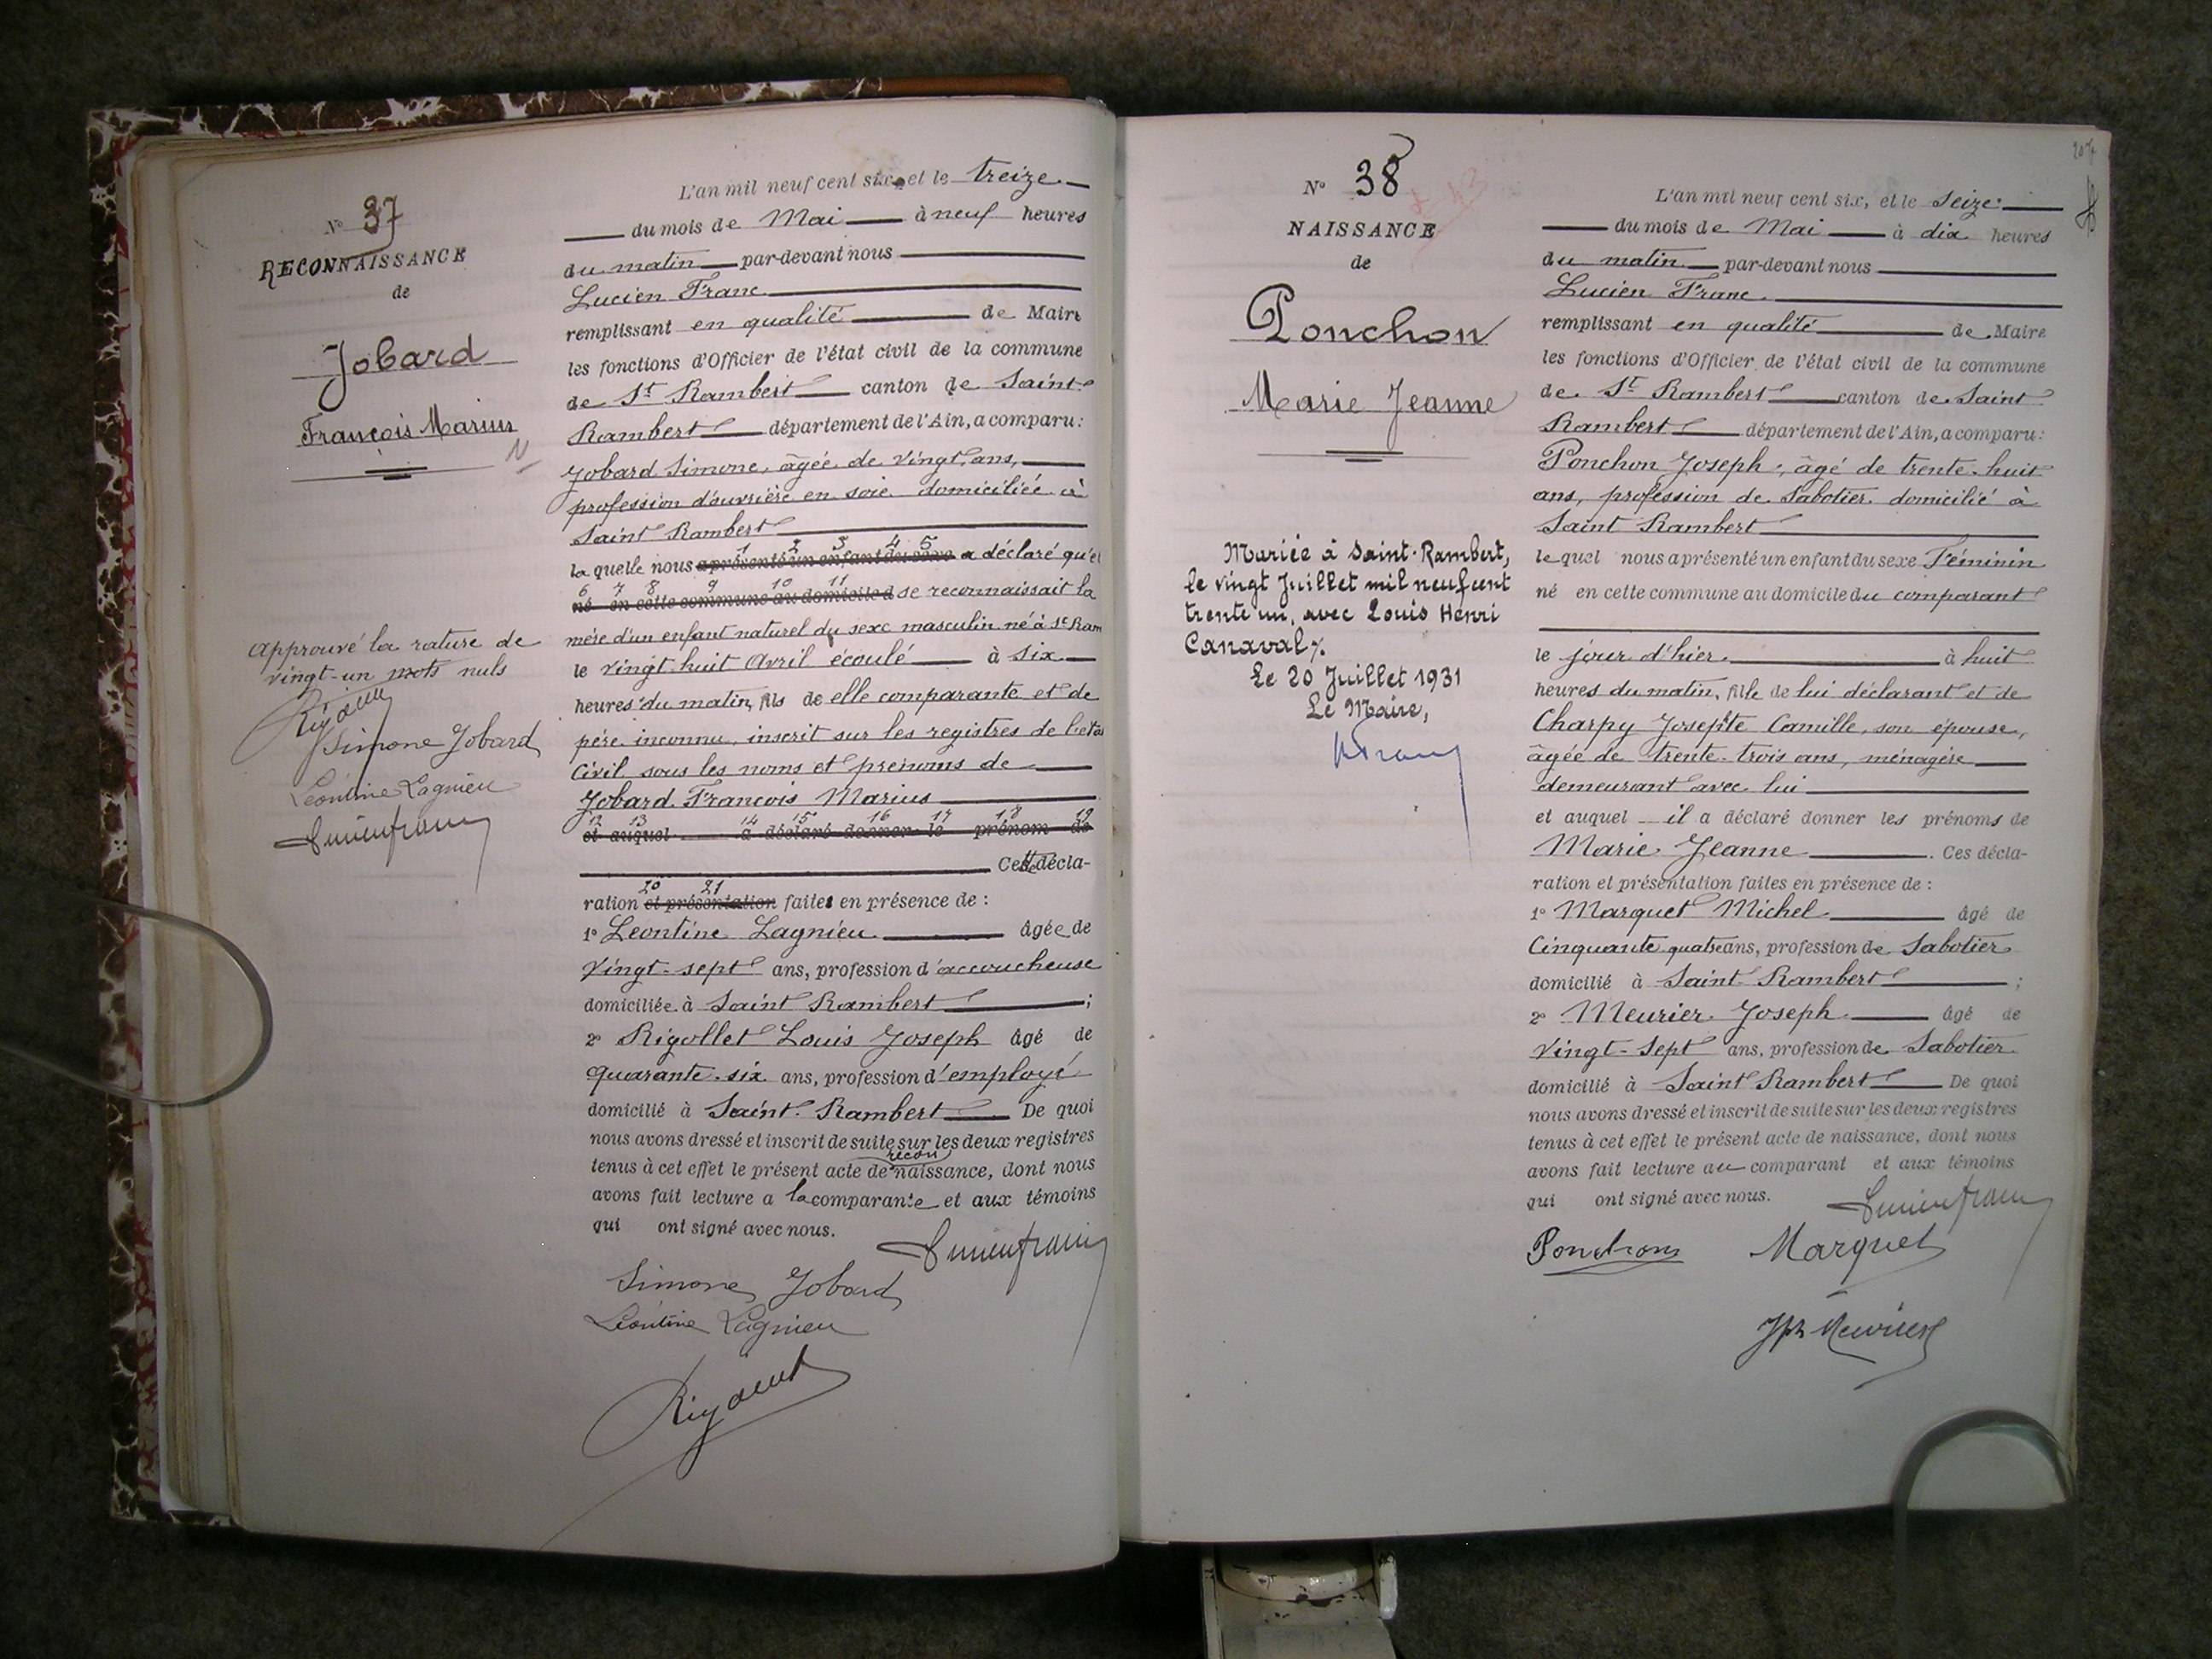 N° 37
RECONNAISSANCE
de
Jobard
François Marius
N
Approuvé la rature de
vingt-un mots nuls
Simone Jobard
Léontine Lagnieu
Lucien Franc
L'an mil neuf cent six, et le treize
du mois de Mai à neuf heures
du matin par-devant nous
Lucien Franc
remplissant en qualité de Maire
les fonctions d'Officier de l'état civil de la commune
de St Rambert canton de Saint
Rambert département de l'Ain, a comparu:
Jobard Simone, âgée de vingt ans,
profession d'ouvrière en soie domiciliée à
Saint Rambert
1 2 3 4 5
la quelle nous a présenté un enfant du sexe a déclaré qu'el
6 7 8 9 10 11
né en cette commune au domicile d se reconnaissait la
mère d'un enfant naturel du sexe masculin né à St Ram
le vingt huit Avril écoulé à six
heures du matin, fils de elle comparante et de
père inconnu, inscrit sur les registres de l'etat
Civil sous les noms et prénoms de
Jobard François Marius
12 13 14 15 16 17 18 19
et auquel a déclaré donner le prénom de
Cette décla-
20 21
ration et présentation faites en présence de :
1° Leontine Lagnieu âgée de
vingt-sept ans, profession d'accoucheuse
domiciliée à Saint Rambert ;
2° Rigollet Louis Joseph âgé de
quarante-six ans, profession d'employé
domicilié à Saint-Rambert De quoi
nous avons dressé et inscrit de suite sur les deux registres
recon
tenus à cet effet le présent acte de naissance, dont nous
avons fait lecture a la comparante et aux témoins
qui ont signé avec nous.
Lucien Franc
Simone Jobard
Léontine Lagnieu
207
N° 38
NAISSANCE
de
Ponchon
Marie Jeanne
Mariée à Saint-Rambert,
le vingt Juillet mil neuf cent
trente un, avec Louis Henri
Canaval
Le 20 Juillet 1931
Le Maire,
L'an mil neuf cent six, et le seize
du mois de Mai à dix heures
du matin par-devant nous
Lucien Franc
remplissant en qualité de Maire
les fonctions d'Officier de l'état civil de la commune
de St Rambert canton de Saint
Rambert département de l'Ain, a comparu:
Ponchon Joseph, âgé de trente-huit
ans, profession de Sabotier domicilié à
Saint Rambert
lequel nous a présenté un enfant du sexe Féminin
né en cette commune au domicile du comparant
le jour d'hier à huit
heures du matin, fille de lui déclarant et de
Charpy Josephte Camille, son épouse,
âgée de trente-trois ans, ménagère
demeurant avec lui
et auquel il a déclaré donner les prénoms de
Marie Jeanne . Ces décla-
ration et présentation faites en présence de :
1° Marquet Michel âgé de
Cinquante quatre ans, profession de Sabotier
domicilié à Saint Rambert ;
2° Meurier Joseph âgé de
vingt-sept ans, profession de Sabotier
domicilié à Saint Rambert De quoi
nous avons dressé et inscrit de suite sur les deux registres
tenus à cet effet le présent acte de naissance, dont nous
avons fait lecture au comparant et aux témoins
qui ont signé avec nous.
Lucien Franc
Ponchon Marquet
Jph Meurier